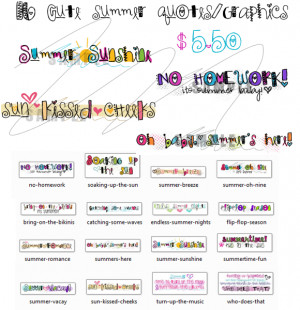 16 cute summer quotes/graphics
$5.50
Summer Sunshine
NO HOMEWORK!
it's summer baby!
sun kissed cheeks
oh baby, summer's here!
no-homework
soaking-up-the-sun
summer-breeze
summer-oh-nine
bring-on-the-bikinis
catching-some-waves
endless-summer-nights
flip-flop-season
summer-romance
summers-here
summer-sunshine
summertime-fun
summer-vacay
sun-kissed-cheeks
turn-up-the-music
who-does-that